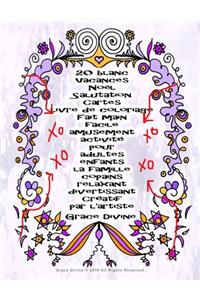 20 blanc
vacances
Noel
Salutation
Cartes
livre de coloriage
Fait Main
Facile
amusement
activité
pour
adultes
enfants
la famille
copains
relaxant
divertissant
Creatif
par l'artiste
Grace Divine
XO
XO
XO
XO
Grace Divine © 2016 All Rights Reserved